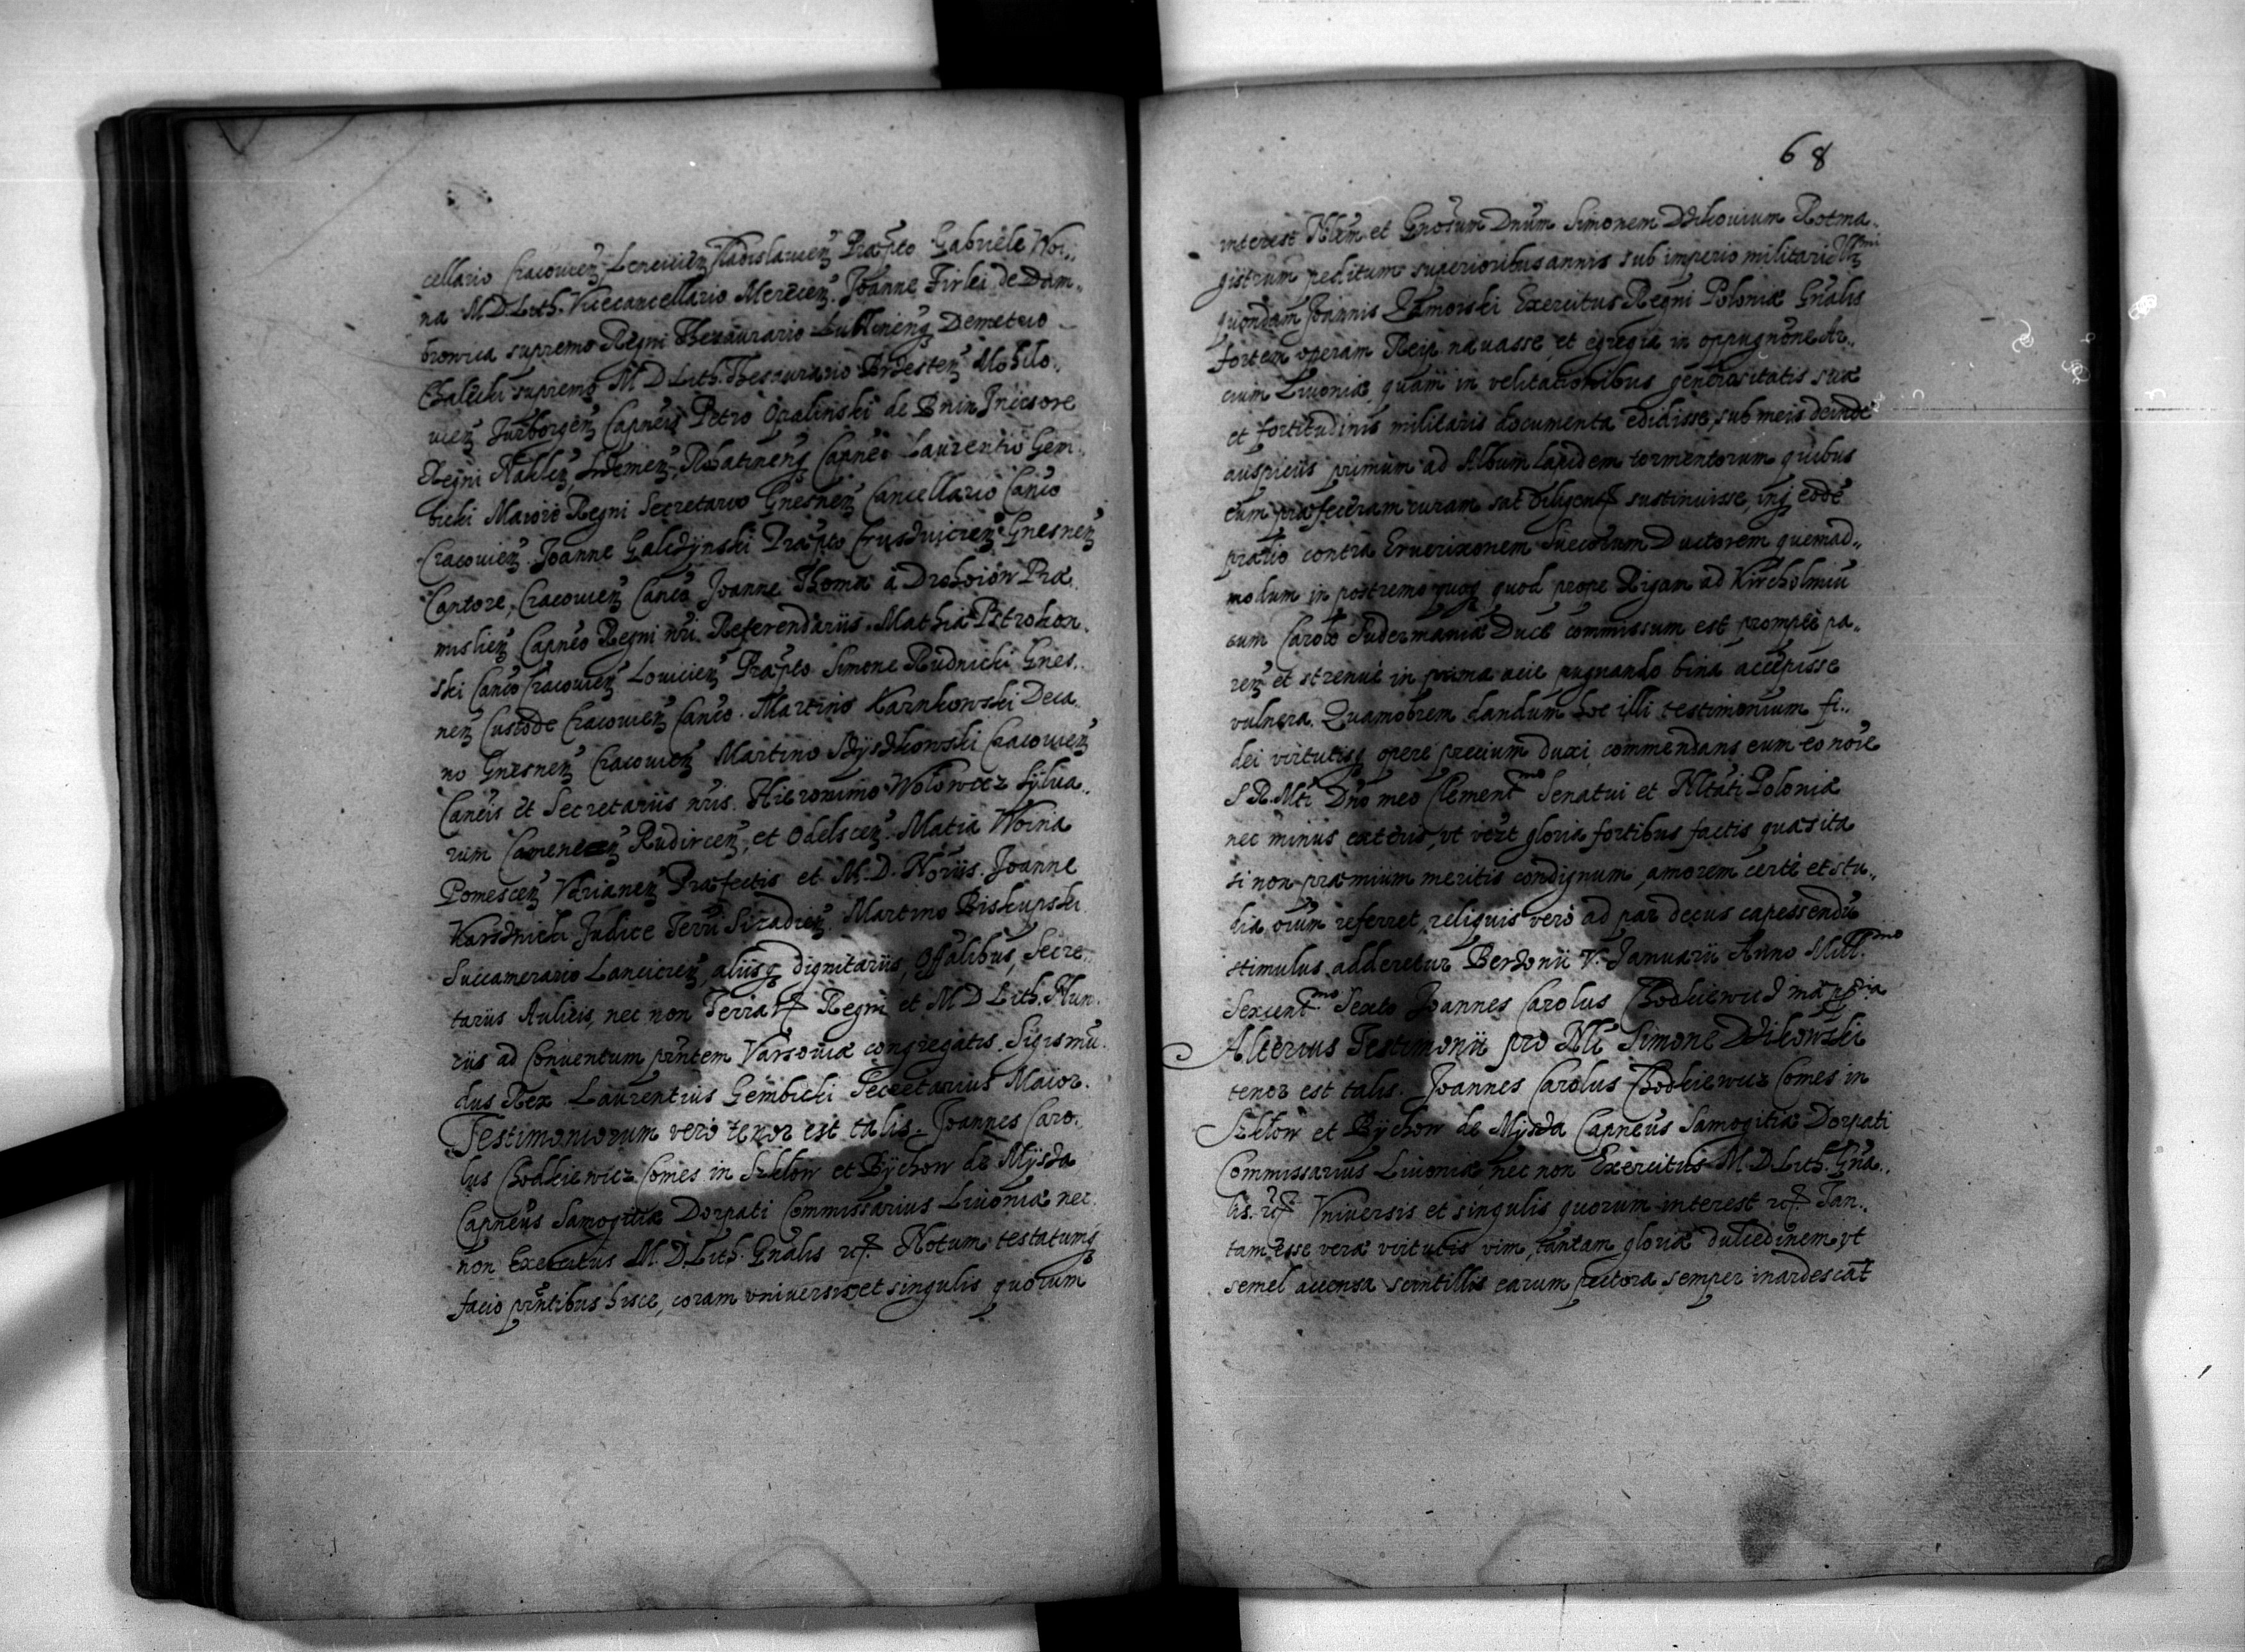 cellario Cracovień Lencicień Vladislavień Præpto Gabriele Woi„
na M.D.Lith. Vicecancellario Merecień. Joanne Firlei de Dam„
browica supremo Regni Thesaurario Lublineń Demetrio
Chalecki supremo M D Lith. Thesaurario Brzesteń Mohilo„
vień Jurborgeń Capneis Petro Opalinski de Bnin Incisore
Regni Nakleń Sremeń, Rohatineń Capneo Laurentio Gem„
bicki Maiore Regni Secretario Gnesneń Cancellario Canco
Cracovień. Joanne Galczynski Præpto Crusduicień Gnesneń
Cantore, Cracovień Canco Joanne Thoma à Drohoiow Præ„
mislień Capneo Regni nri Referendariis. Mathia Pstrokon„
ski Canco Cracovień Lovicień Præpto Simone Rudnicki Gnes„
neń Custode Cracovień Canco. Martino Karnkowski Deca„
no Gnesneń Cracovień Martino Szyszkowski Cracovień
Canćis et Secretariis nris. Hieronimo Wołowicz Sylva„
rum Cameneceń Rudirceń, et Odelsceń. Matia Woina
Pomesceń Varianeń Præfectis et M.D. Noriis. Joanne
Karsznicki Judice Terri Siradień. Martino Biskupski
Succamerario Lancicień, aliisq dignitariis, Offalibus, Secre„
tariis Aulicis, nec non Terrar Regni et M D Lith. Nun„
riis ad Conventum pntem Varsoviæ congregatis. Sigismu„
dus Rex Laurentius Gembicki Secretarius Maior.
Testimoniorum vero tenor est talis. Joannes Caro„
lus Chodkiewicz Comes in Szklow et Bÿchow de Mÿsza
Capneus Samogitiæ Dorpati Commissarius Livoniæ nec
non Exercitus M.D.Lith. Gnalis etc. Notum testatumq
facio pntibus hisce, coram universis et singulis quorum
68
interest Nlem et Gnosum Dnum Simonem Wilkovium Rotma„
gistrum peditum superioribus annis sub imperio militari Illmi
quondam Joannis Zamoiski Exercitus Regni Poloniæ Gnalis
fortem operam Reip. navasse, et egregia in oppugnone Ar„
cium Livoniæ quam in velitationibus generositatis suæ
et fortitudinis militaris documenta edidisse, sub meis deinde
auspiciis primum ad Album Lapidem tormentorum quibus
eum præfeceram curam sat diligenter sustinuisse, inq eode
prælio contra Erverixonem Suecorum Ductorem quemad„
modum in postremo quoq quod prope Rigam ad Kircholmiu
cum Carolo Sudermaniæ Duce commissum est prompte pa„
reń et strenue in prima acie pugnando bina accepisse
vulnera. Quamobrem dandum hoc illi testimonium fi„
dei virtutisq opere precium duxi, commendans eum eo noie
S.R.Mti Dno meo Clementmo Senatui et Nltati Poloniæ
nec minus exteris, ut vere gloria fortibus factis quæsita
si non præmium meritis condignum, amorem certe et stu„
dia oium referret, reliquis vero ad par decus capessendu
stimulus adderetur Bersonii V. Januarii Anno Millmo
Sexcentmo Sexto Joannes Carolus Chodkiewicz ma ppria
Alterius Testimonii pro Nli Simone Wilkowski
tenor est talis. Joannes Carolus Chodkiewicz Comes in
Szklow et Bÿchow de Mÿsza Capneus Samogitiæ Dorpati
Commissarius Livoniæ nec non Exercitus M.D.Lith. Gna„
lis. etc. Universis et singulis quorum interest etc. Tan„
tam esse veræ virtutis vim, tantam gloriæ dulcedinem, ut
semel accensa scintillis earum pectora semper inardescat